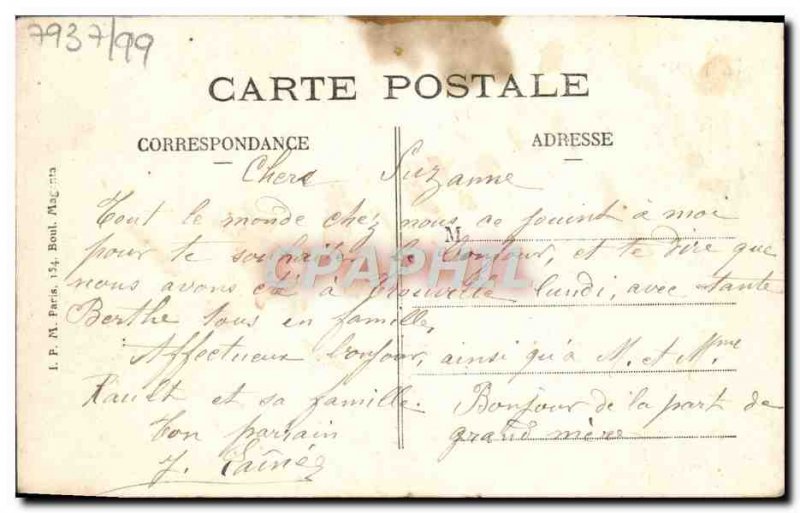 7937/99
CARTE POSTALE
CORRESPONDANCE
ADRESSE
Chere Suzanne
Tout le monde chez nous ce jouint à moi
M
pour te souhaiter le bonjour, et te dire que
nous avons été à lundi, avec tante
Berthe tous en famille,
Affectueux bonjour, ainsi qu'à M. et Mme
Rault et sa famille. Bonjour de la part de
grand mère
Ton parrain
J.
CPAPHIL
I. P. M. Paris, 154, Boul. Magenta